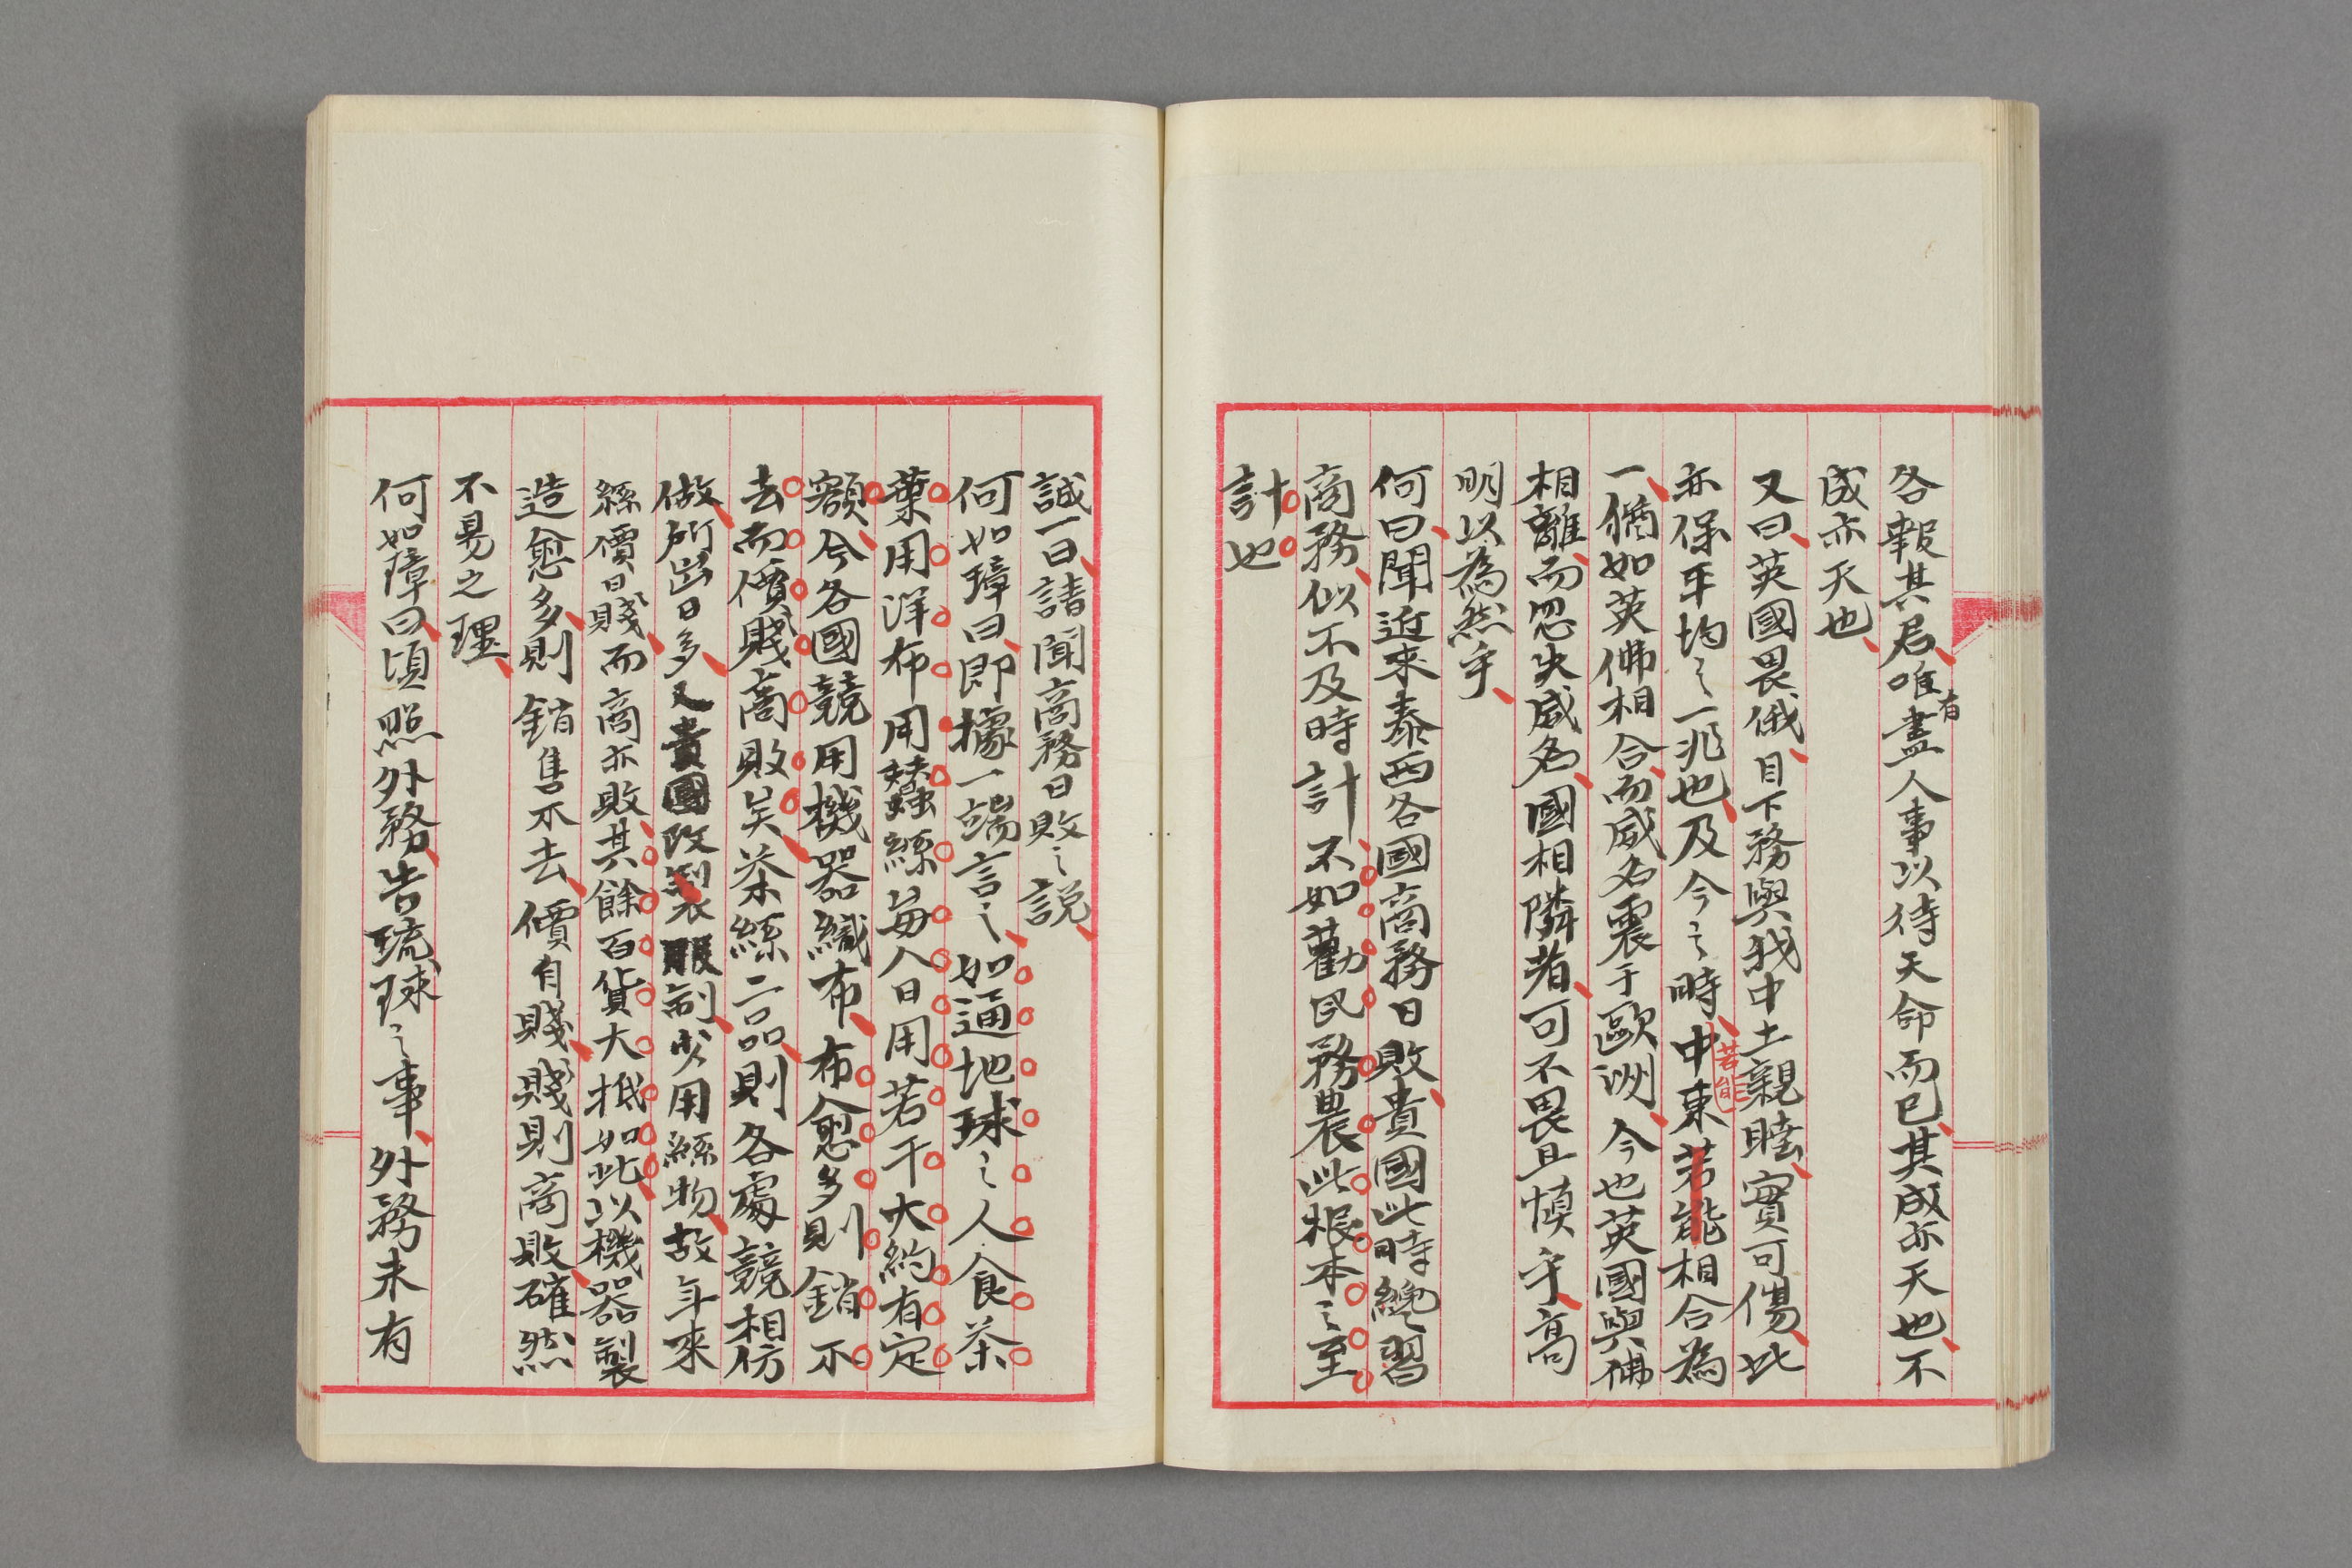 各報其君唯有盡人事以待天命而已其成亦天也不
成亦天也
又曰英國畏俄目下務與我中土親睦實可傷此
亦保平均之一兆也及今之時中東若能相合為
若能
一猶如英佛相合而威名震于歐洲今也英國與佛
相離而忽失威名國相隣者可不畏且慎乎高
明以為然乎
何曰聞近來泰西各國商務日敗貴國此時纔習
商務似不及時計不如勸民務農此根本之至
計也
誠一曰請聞商務日敗之說
何如璋曰即據一端言之如通地球之人食茶
葉用洋布用蠶絲每人日用若干大約有定
額今各國競用機器織布布愈多則銷不
去而價賤商敗矣茶絲二品則各處競相仿
做所出日多又貴國改製服制少用絲物故年來
絲價日賤而商亦敗其餘百貨大抵如此以機器製
造愈多則銷售不去價自賤賤則商敗確然
不易之理
何如璋曰頃照外務告琉球之事外務未有